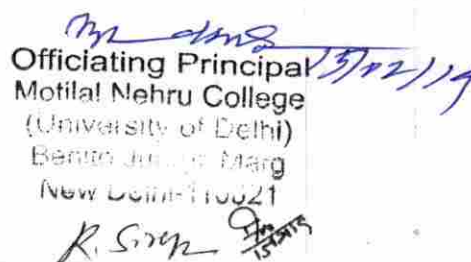 15/02/19
Officiating Principal
Motilal Nehru College
(University of Delhi)
Benito Juarez Marg
New Delhi-110021